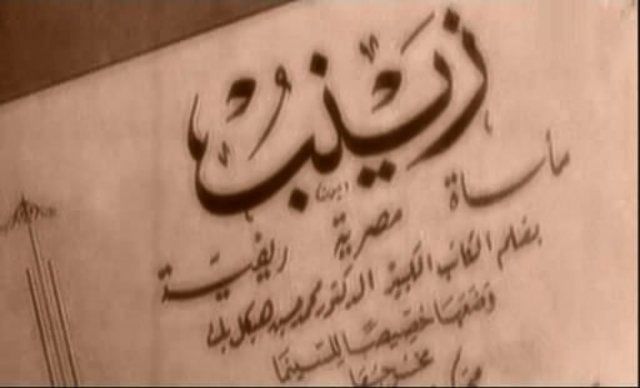 زينب
مأساة مصرية ريفية
بقلم الكاتب الكبير الدكتور محمد حسين هيكل
وضعها خصيصا للسينما
مخرجها